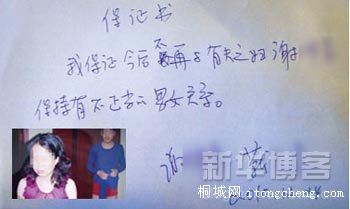 保证书
我保证今后不再与有夫之妇谢
保持有不正当男女关系。
谢 茂
新华博客
桐城网 itongcheng.com